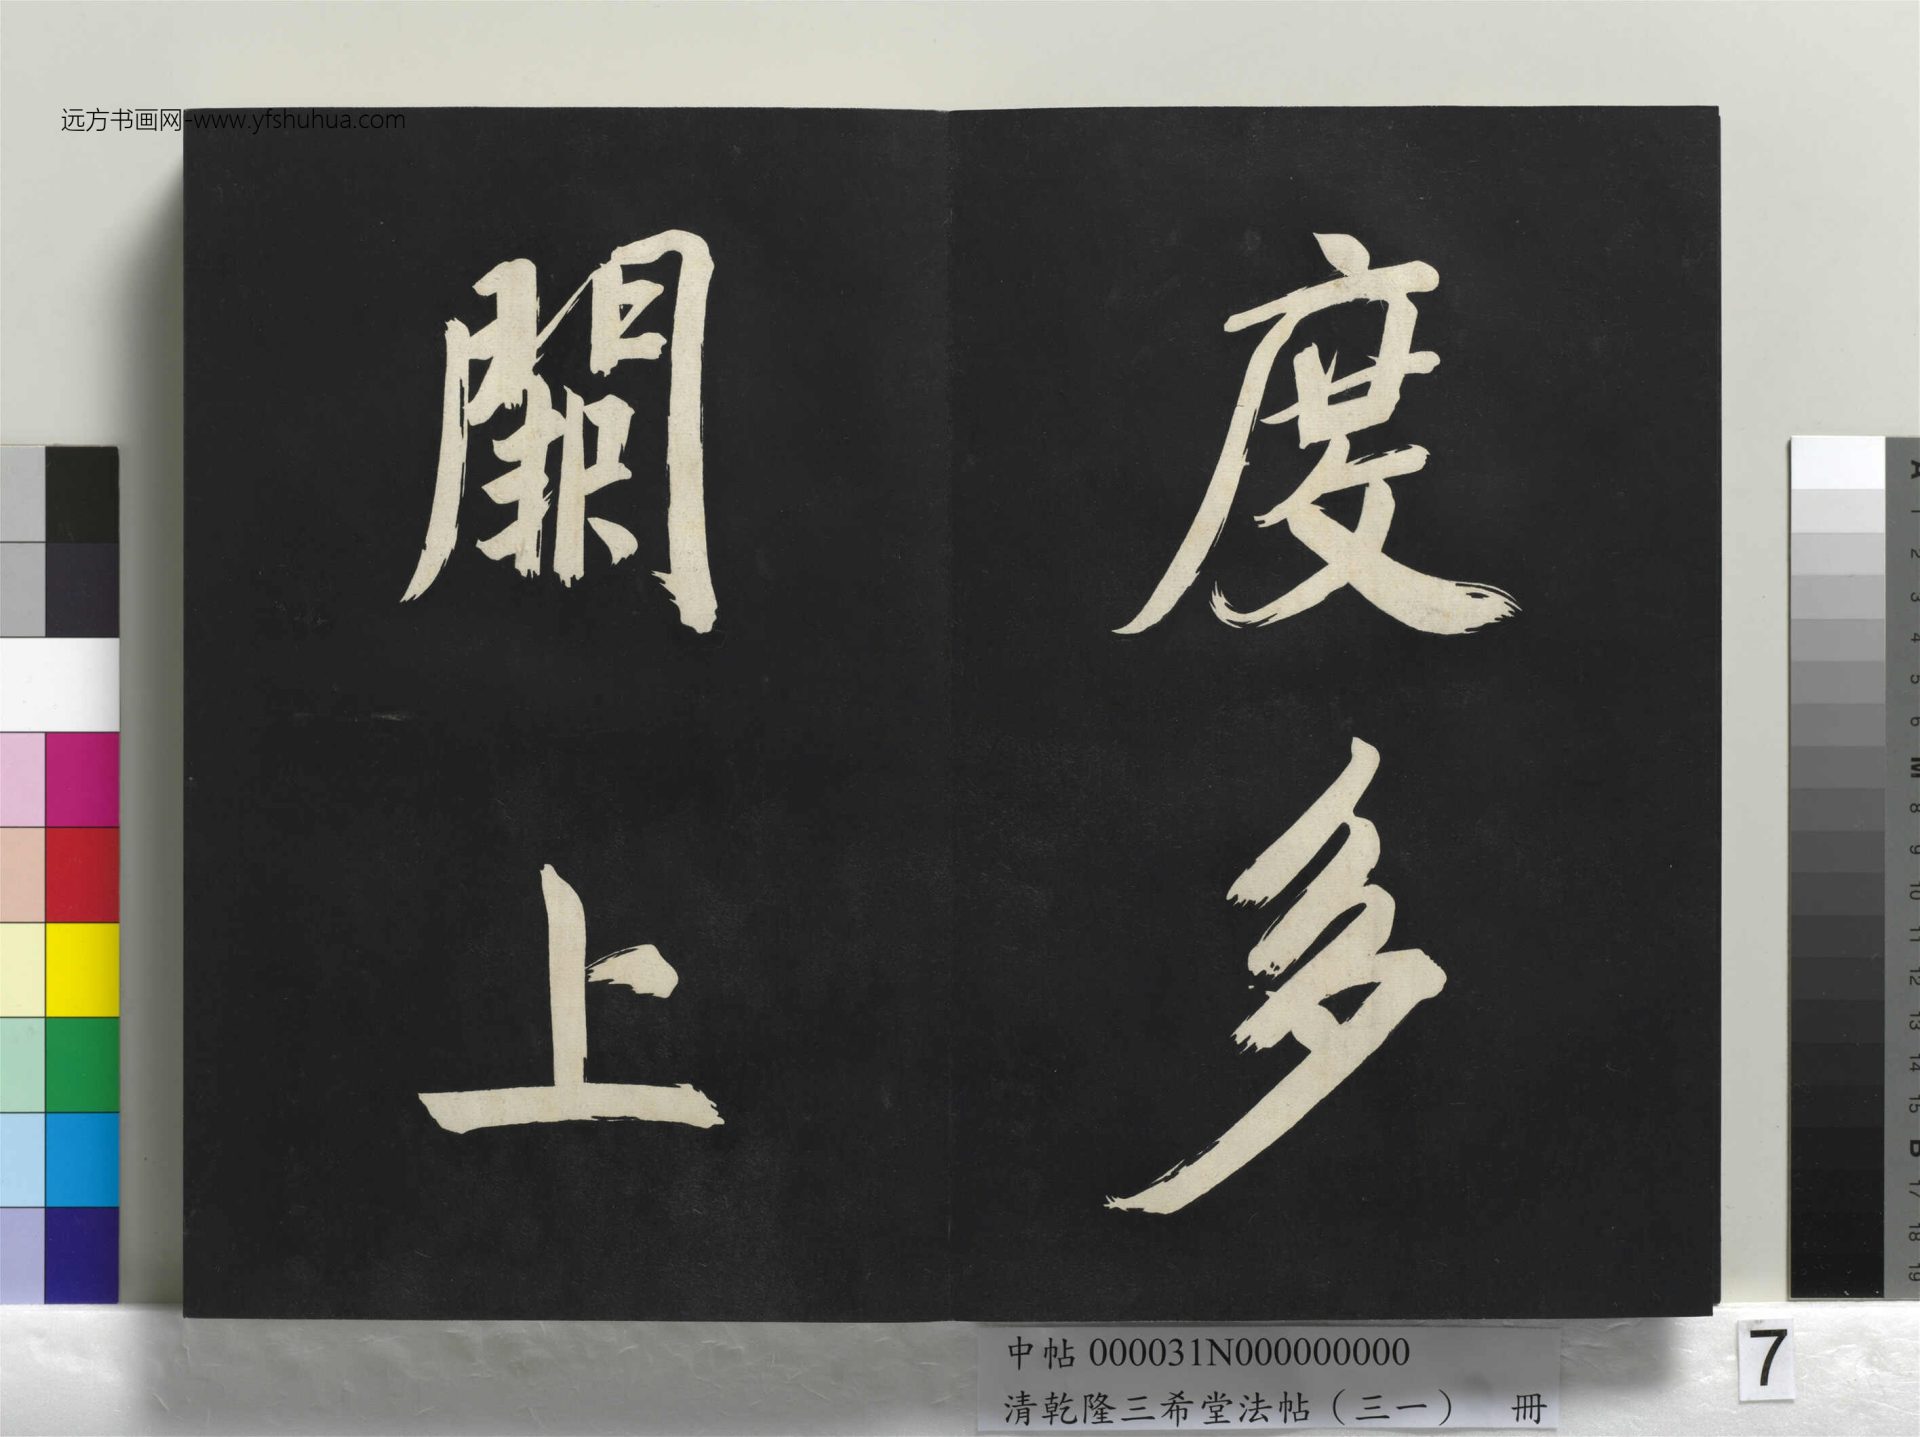 远方书画网-www.yfshuhua.com
度多
上
中帖 000031N000000000
清乾隆三希堂法帖（三一） 冊
7
A
1
2
3
4
5
6
M
8
9
10
11
12
13
14
15
B
17
18
19